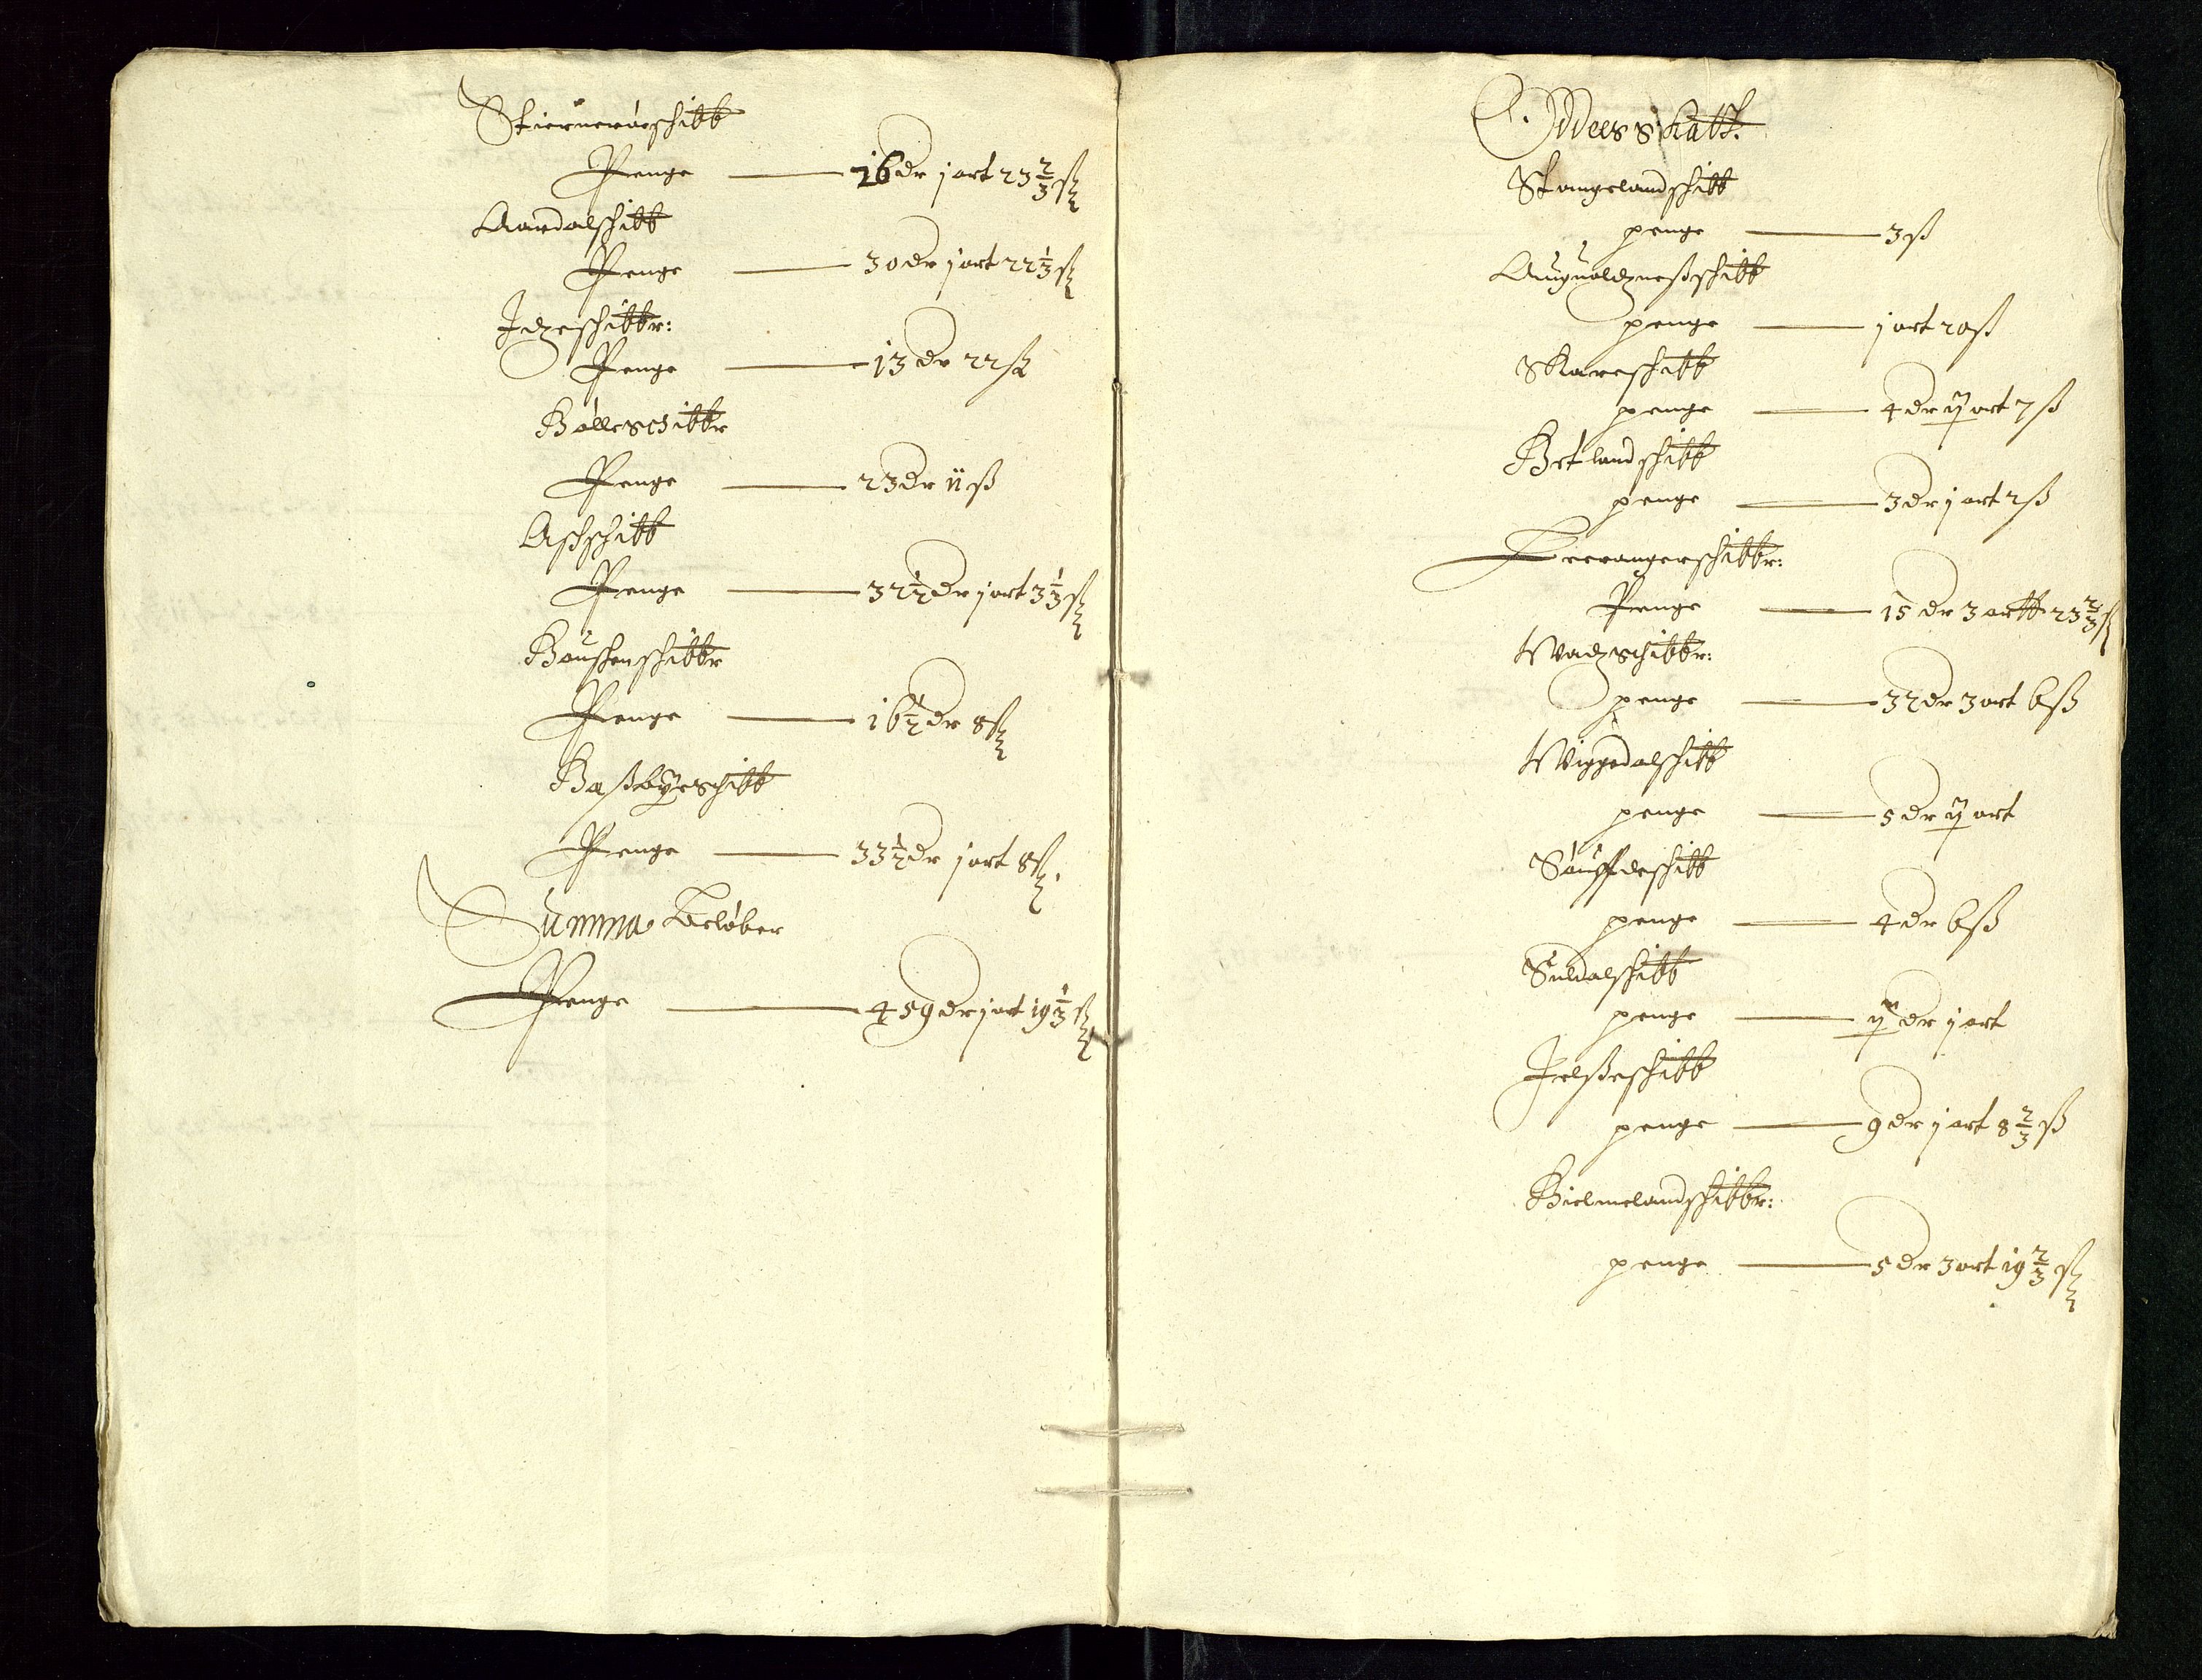 Stiernerøeschibb
Penge — 26 dr j ort 23 2/3 ß
Aardalschibb
Penge — 30 dr j ort 22 1/3 ß
Idzeschibbr:
Penge — 13 dr 22 ß
Bølleschibbr
Penge — 23 dr 11 ß
Aschschibb
Penge — 32 1/2 dr j ort 3 1/3 ß
Bouschenschibbr
Penge — 16 1/2 dr 8 ß
Haßbyeschibb
Penge — 33 1/2 dr j ort 8 ß.
Summa Beløber
Penge — 459 dr j ort 19 1/3 ß
Oddelsskatt.
Stangelandschibb
penge — 3 ß
Augualdzneßschibb
penge — j ort 20 ß
Skareschibb
penge — 4 dr ij ort 7 ß
Hetlandschibb
penge — 3 dr j ort 2 ß
Leerangerschibbr:
Penge — 15 dr 3 ortt 23 2/3 ß
Wadzschibbr:
penge — 32 dr 3 ort 6 ß
Wiggedalschibb
penge — 5 dr ij ort
Souffdeschibb
penge — 4 dr 6 ß
Suldalschibb
penge — ij dr j ort
Jelßeschibb
penge — 9 dr j ort 8 2/3 ß
Hielmelandschibbr:
penge — 5 dr 3 ort 19 2/3 ß